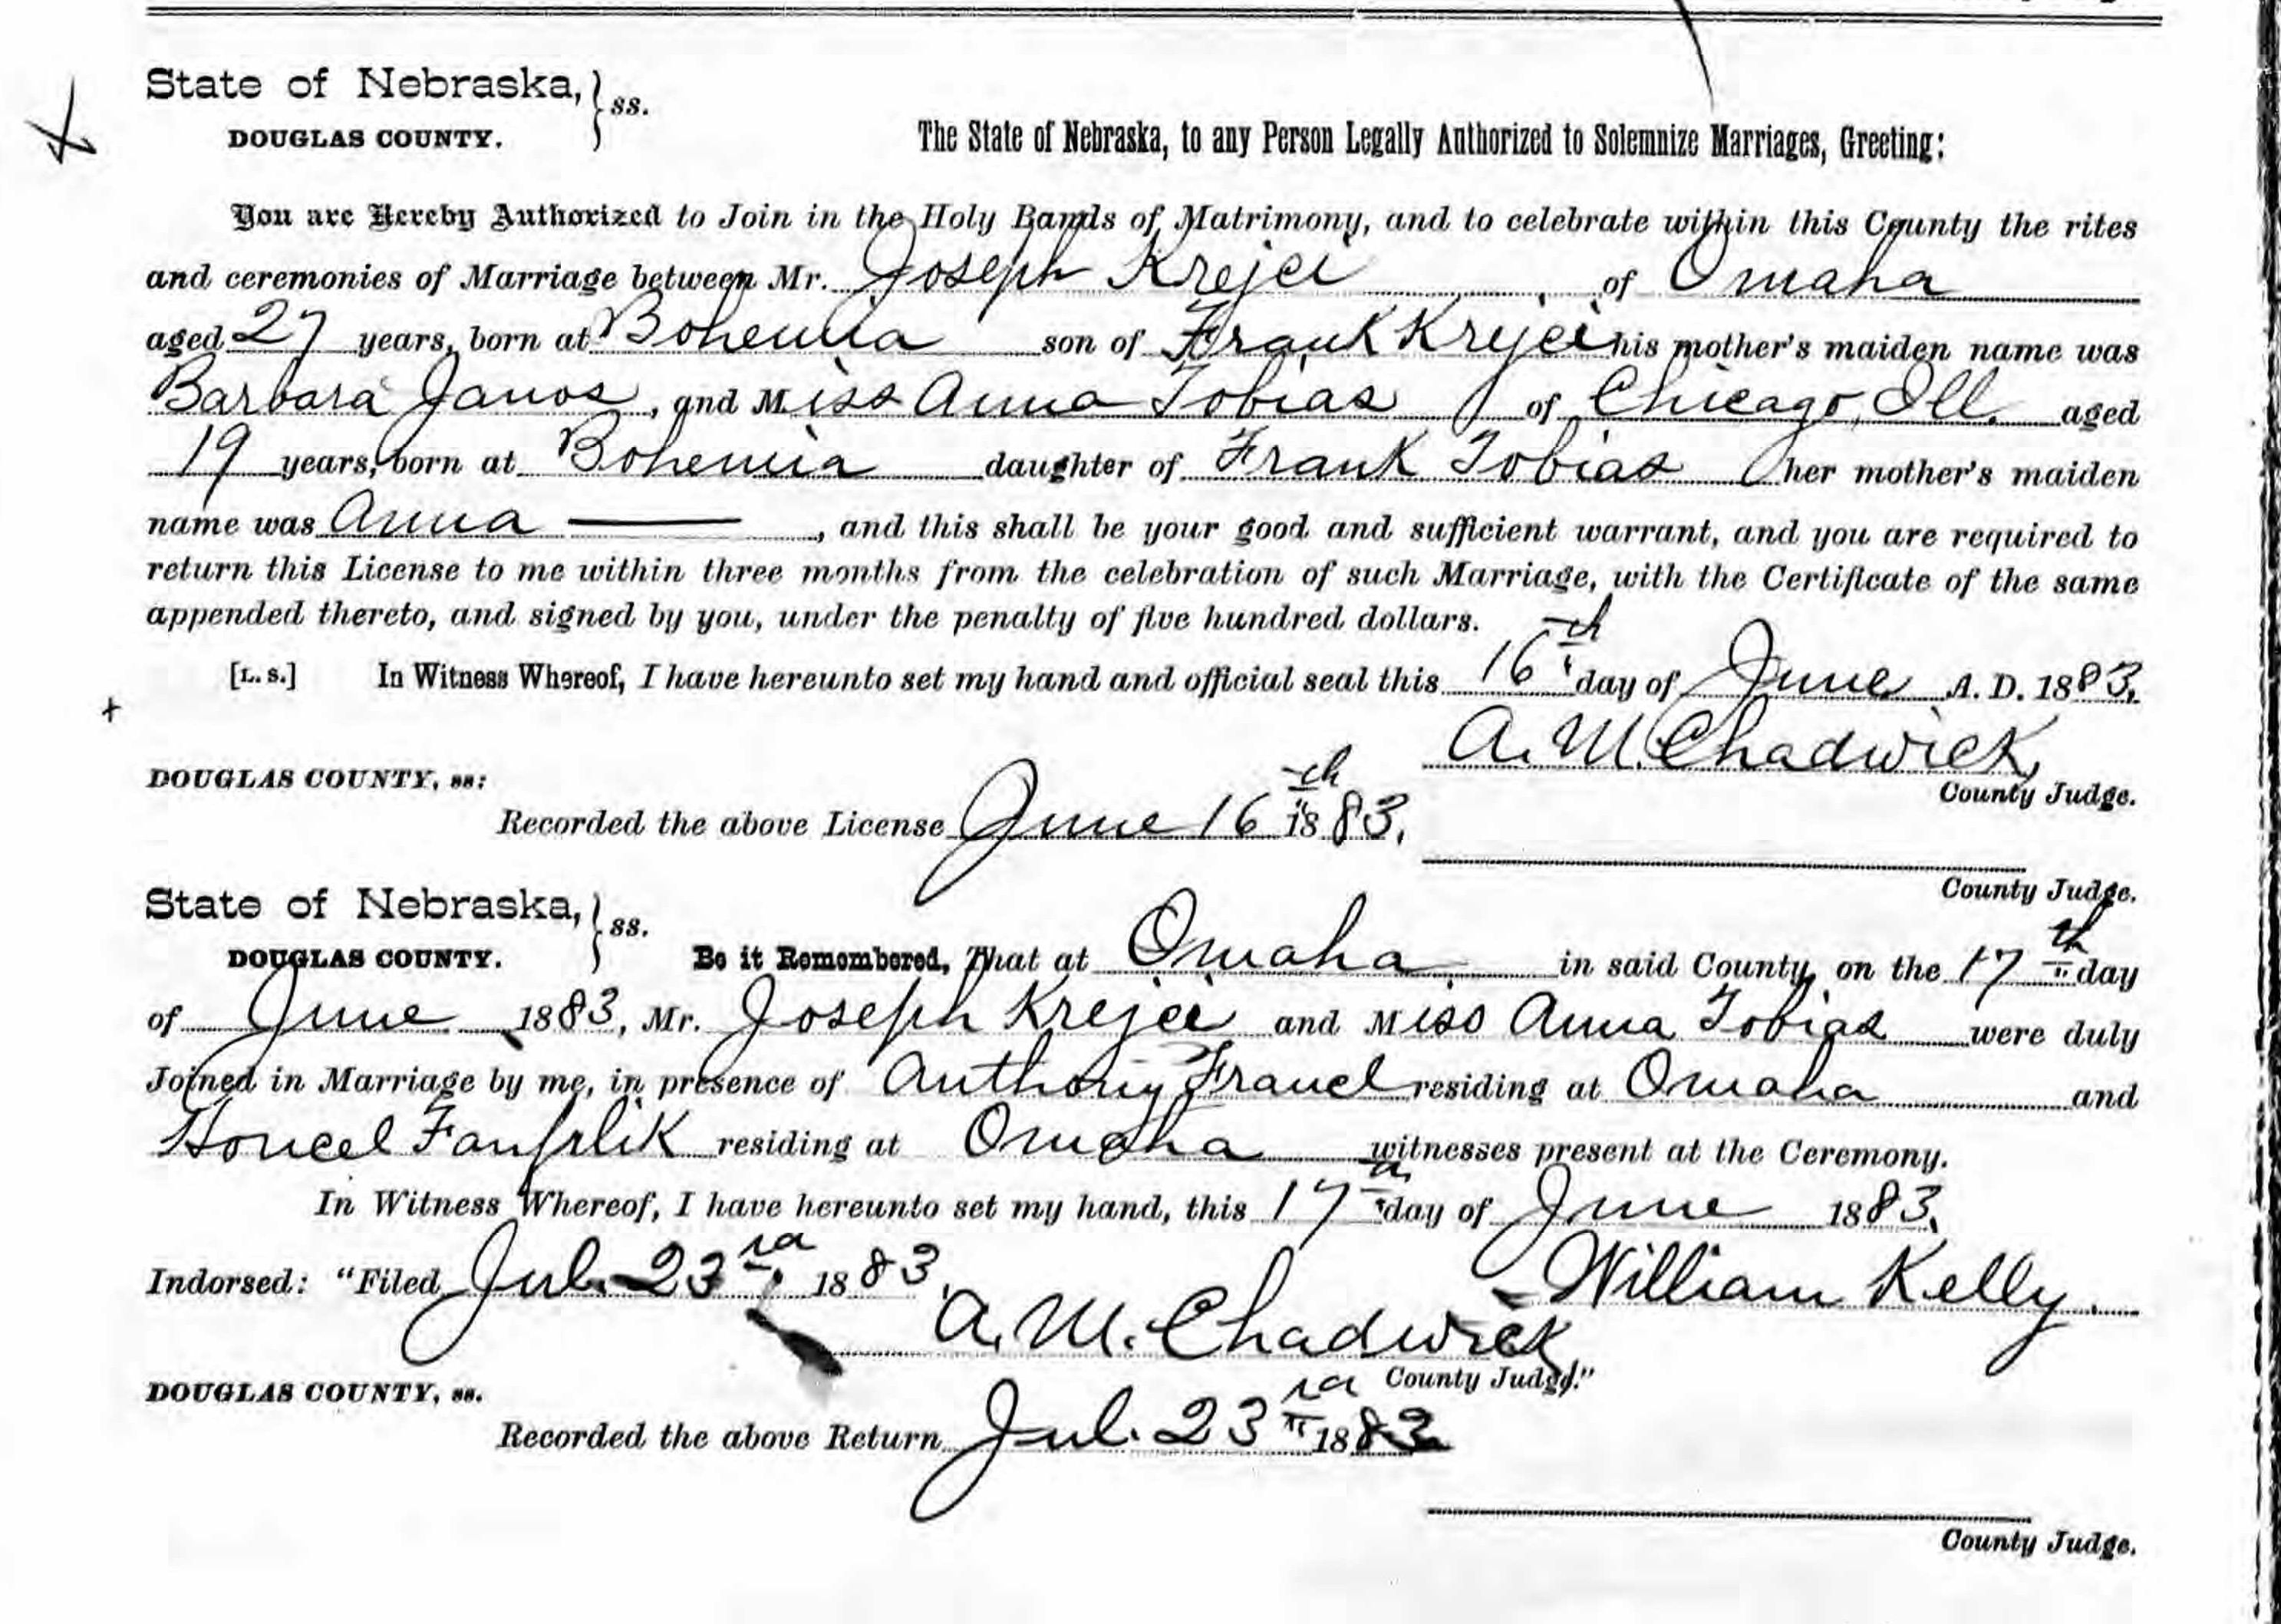 State of Nebraska, } ss.
DOUGLAS COUNTY.
The State of Nebraska, to any Person Legally Authorized to Solemnize Marriages, Greeting:
You are Hereby Authorized to Join in the Holy Bands of Matrimony, and to celebrate within this County the rites
and ceremonies of Marriage between Mr. Joseph Krejci of Omaha
aged 27 years, born at Bohemia son of Frank Krejci his mother's maiden name was
Barbara Janos, and Miss Anna Tobias of Chicago, Ill. aged
19 years, born at Bohemia daughter of Frank Tobias her mother's maiden
name was Anna ———, and this shall be your good and sufficient warrant, and you are required to
return this License to me within three months from the celebration of such Marriage, with the Certificate of the same
appended thereto, and signed by you, under the penalty of five hundred dollars.
[L. S.] In Witness Whereof, I have hereunto set my hand and official seal this 16th day of June A. D. 1883.
A. M. Chadwick,
County Judge.
DOUGLAS COUNTY, ss:
Recorded the above License June 16th 1883.
County Judge.
State of Nebraska, } ss.
DOUGLAS COUNTY.
Be it Remembered, That at Omaha in said County, on the 17th day
of June 1883, Mr. Joseph Krejci and Miss Anna Tobias were duly
Joined in Marriage by me, in presence of Anthony Francl residing at Omaha and
Fanfrlik residing at Omaha witnesses present at the Ceremony.
In Witness Whereof, I have hereunto set my hand, this 17th day of June 1883.
William Kelly
Indorsed: "Filed Jul. 23rd 1883.
A. M. Chadwick,
County Judge."
DOUGLAS COUNTY, ss.
Recorded the above Return Jul. 23rd 1883
County Judge.